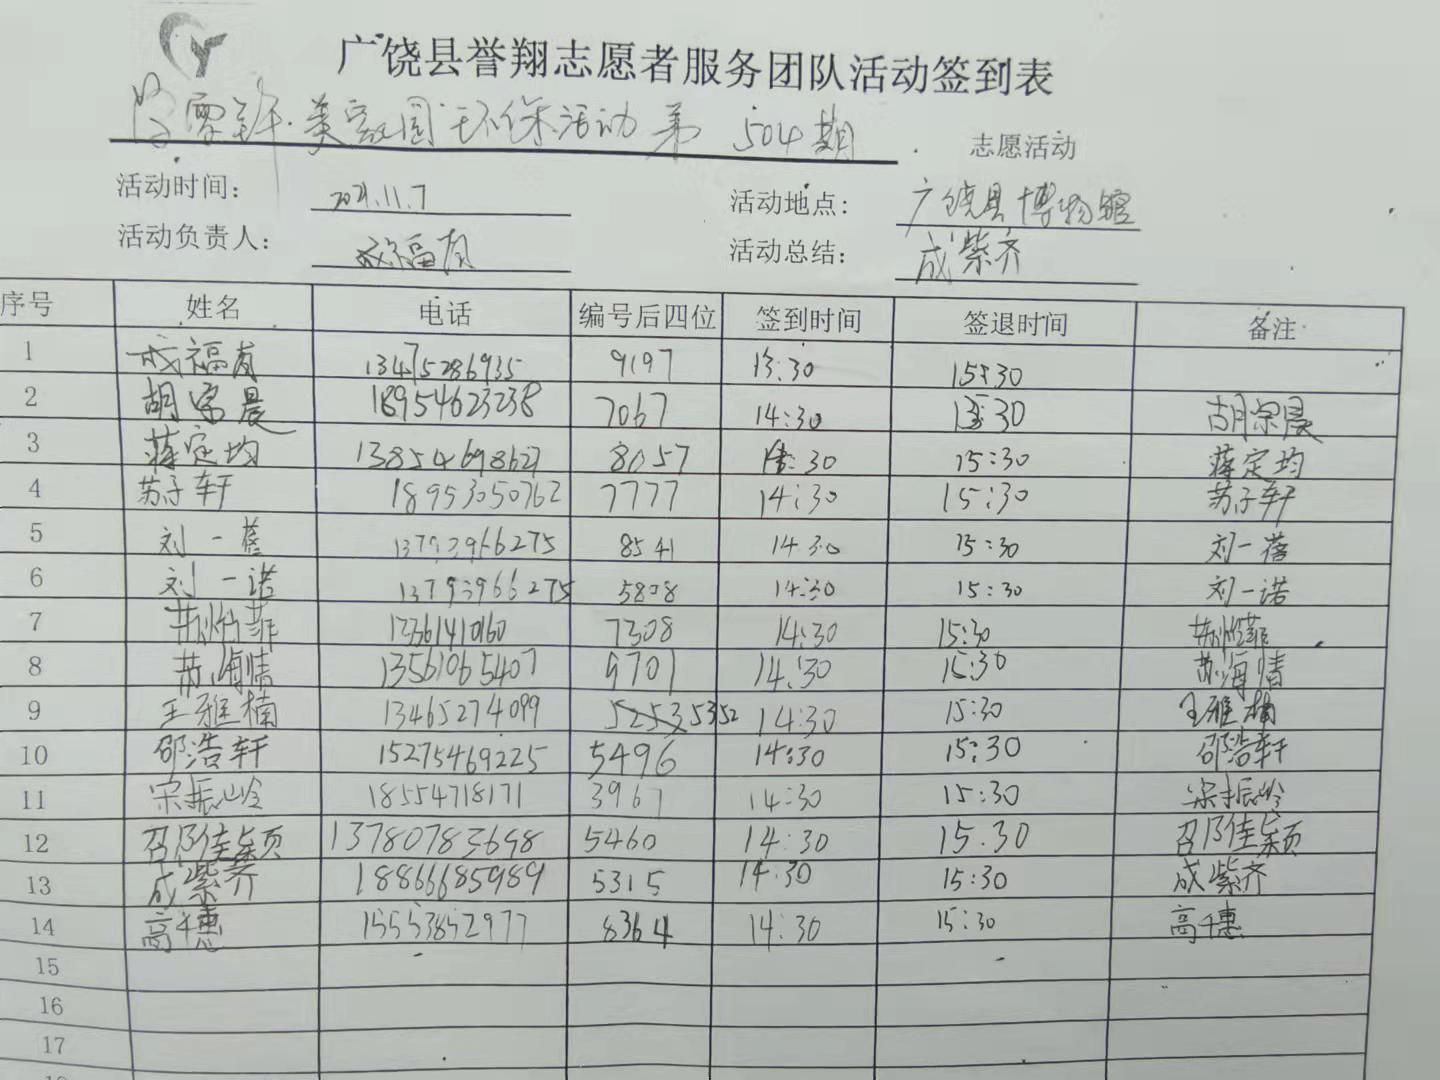 广饶县誉翔志愿者服务团队活动签到表
学雷锋·美家园环保活动第504期 志愿活动
活动时间: 2021.11.7 活动地点: 广饶县博物馆
活动负责人: 成福友 活动总结: 成紫齐
序号 姓名 电话 编号后四位 签到时间 签退时间 备注
1 成福友 13475286935 9197 13:30 15:30
2 胡宗晨 18954623238 7067 14:30 15:30 胡宗晨
3 蒋定均 13854698627 8057 14:30 15:30 蒋定均
4 苏子轩 18953050762 7777 14:30 15:30 苏子轩
5 刘一蓓 13793966275 8541 14:30 15:30 刘一蓓
6 刘一诺 13793966275 5808 14:30 15:30 刘一诺
7 7308 14:30 15:30
8 苏海情 13561065407 9701 14:30 15:30 苏海情
9 王雅楠 13465274099 5253 5352 14:30 15:30 王雅楠
10 邵浩轩 15275469225 5496 14:30 15:30 邵浩轩
11 宋振岭 18554718171 3967 14:30 15:30 宋振岭
12 邵佳颖 13780783698 5460 14:30 15:30 邵佳颖
13 成紫齐 18866685989 5315 14:30 15:30 成紫齐
14 高千惠 15553852977 8364 14:30 15:30 高千惠
15
16
17